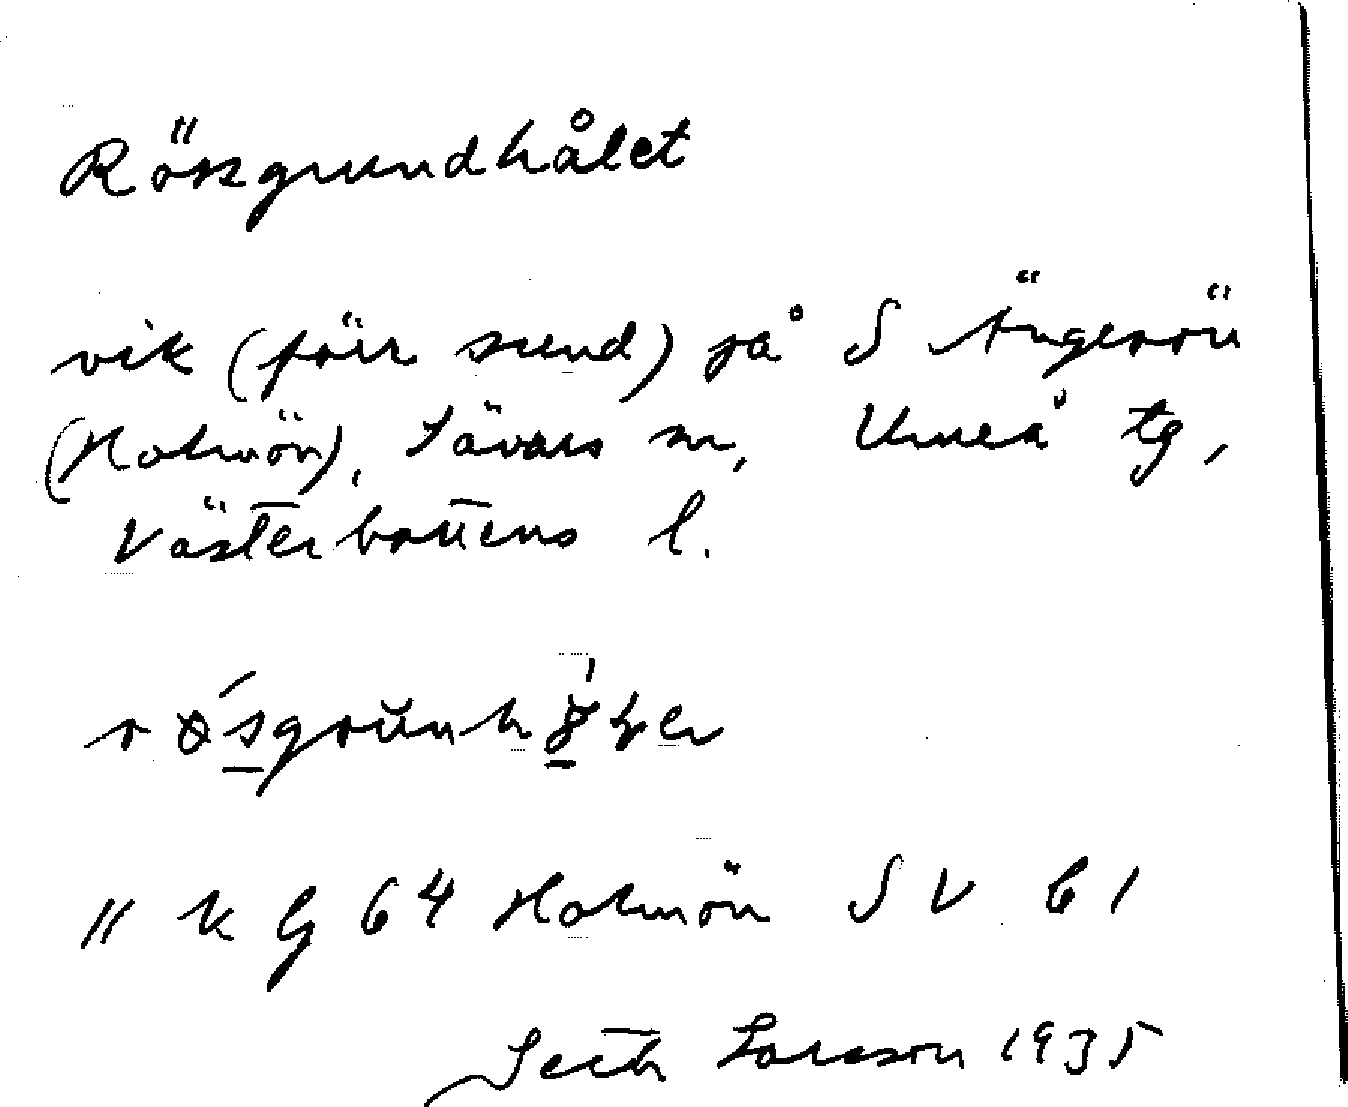 Rösgrundhålet
vik (förr sund) på S Ängesön
(Holmön), Sävars sn, Umeå tg,
Västerbottens l.
K G 64 Holmön SV b1
Seth Larsson 1935